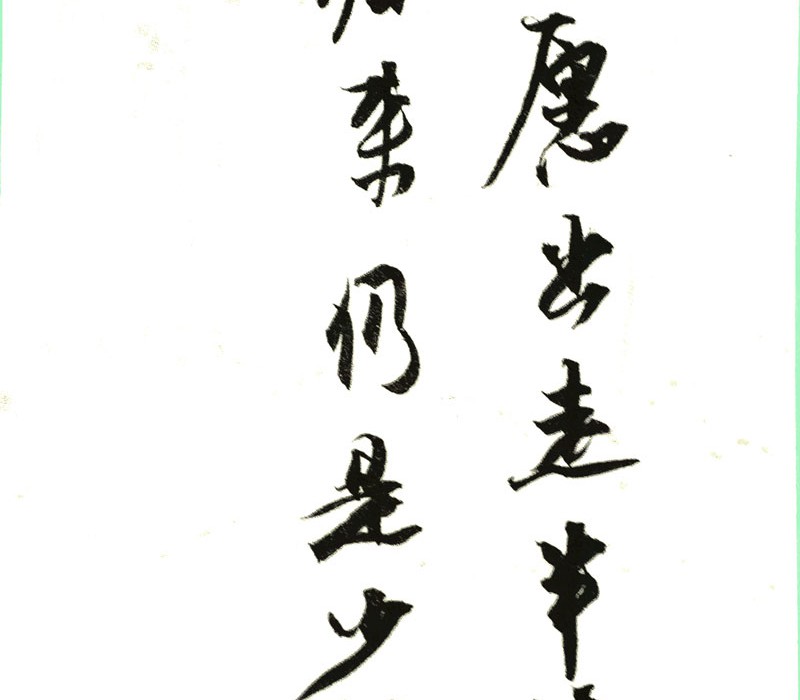 愿出走半
来仍是少